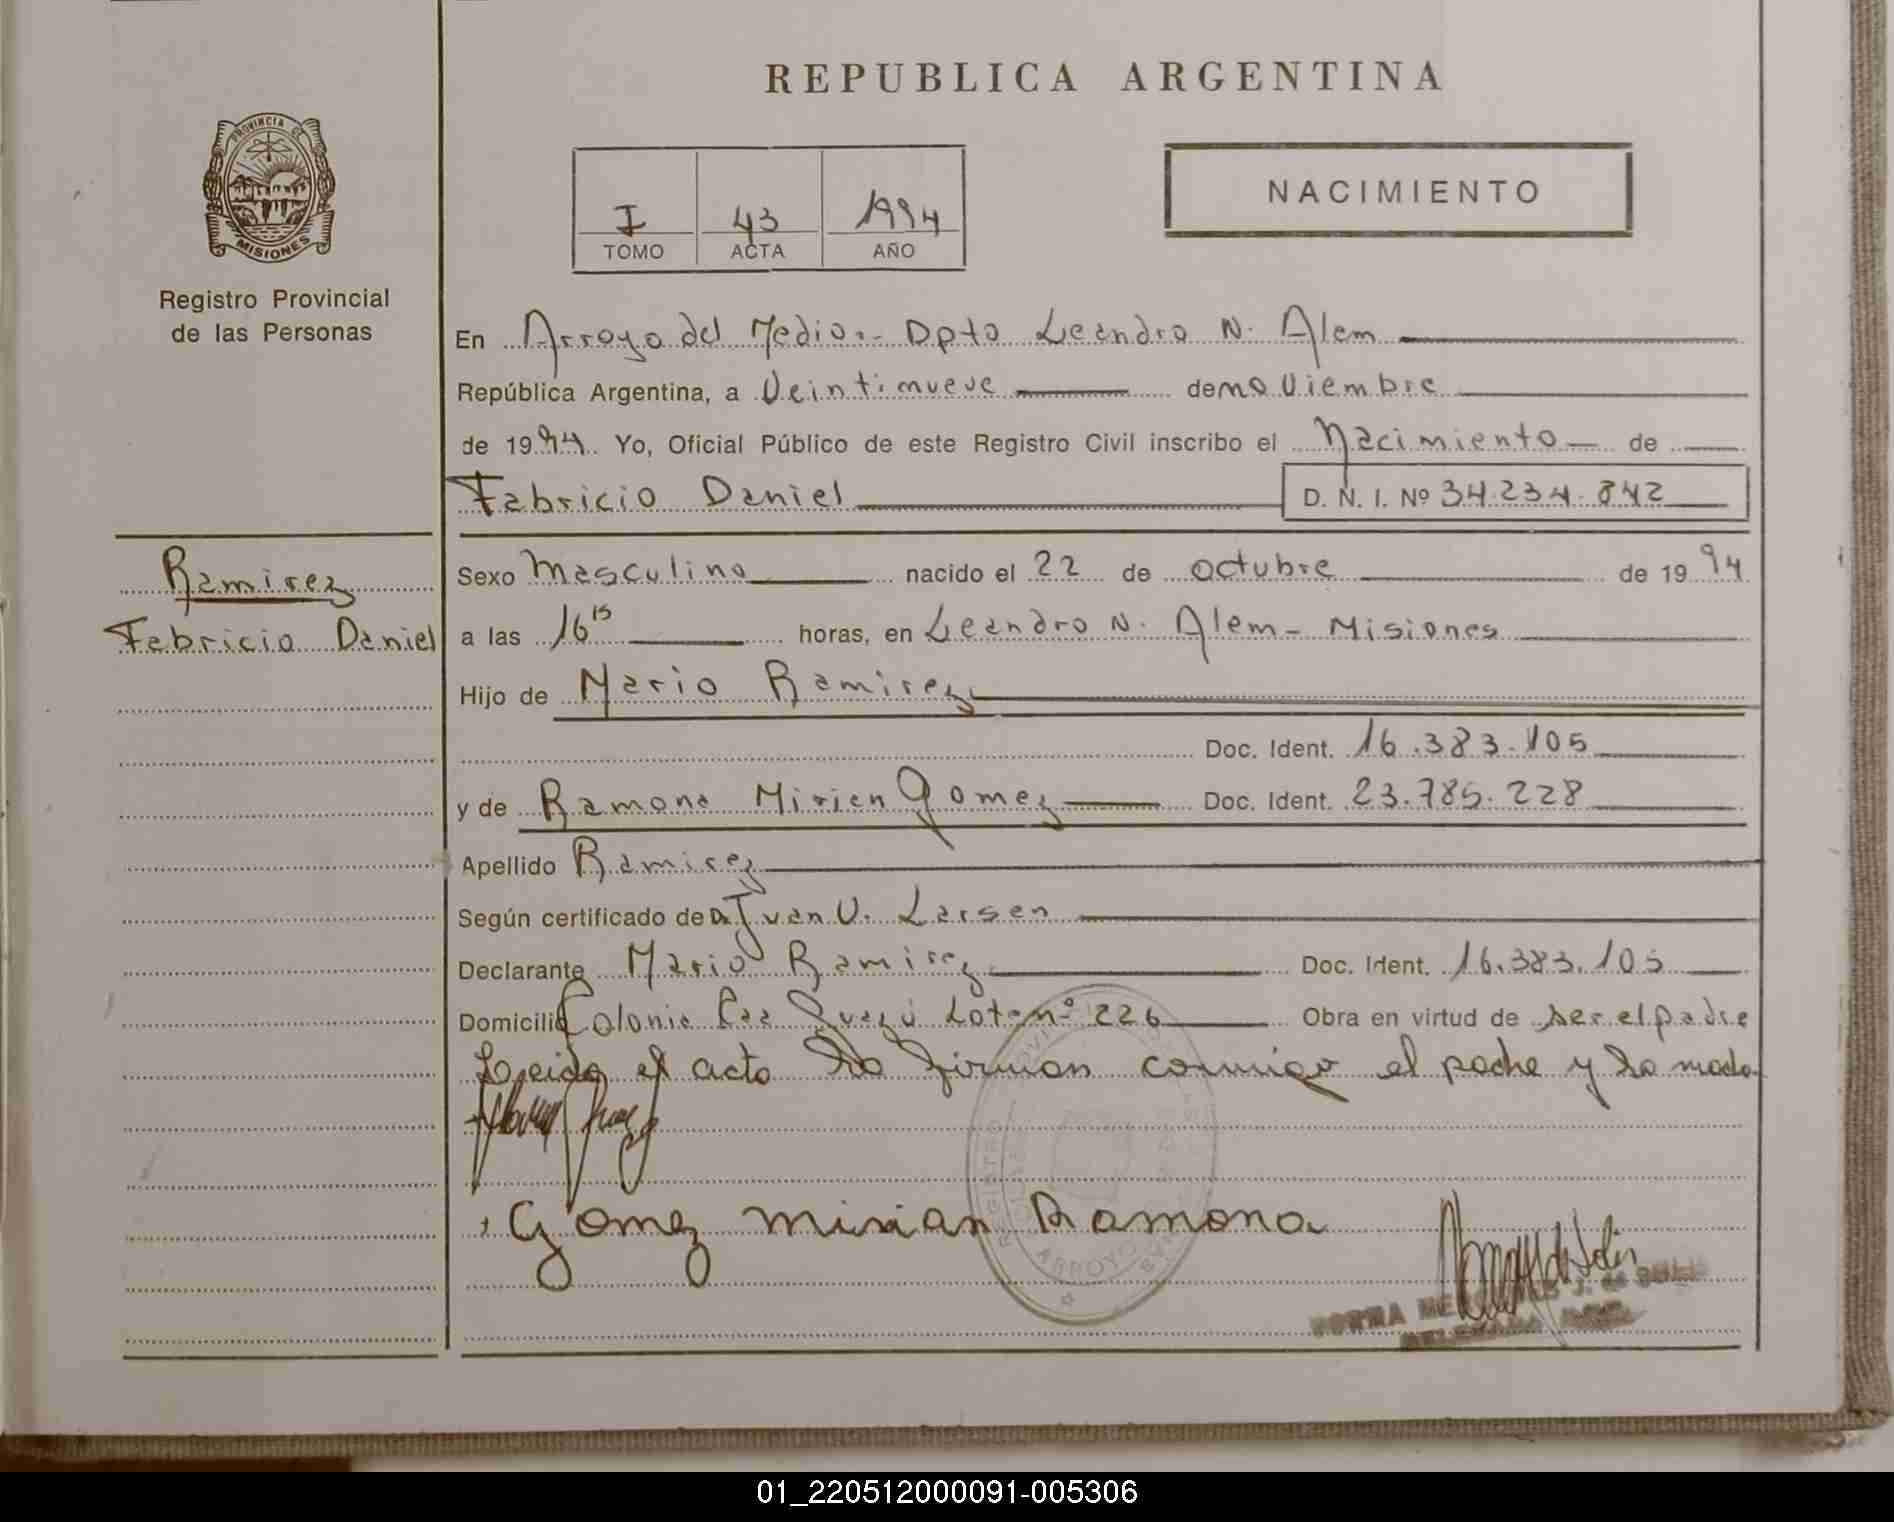 REPUBLICA ARGENTINA
PROVINCIA DE
MISIONES
Registro Provincial
de las Personas
I 43 1994
TOMO ACTA AÑO
NACIMIENTO
En Arroyo del Medio.- Dpto Leandro N. Alem
República Argentina, a Veintinueve de noviembre
de 1994. Yo, Oficial Público de este Registro Civil inscribo el Nacimiento de
Fabricio Daniel D. N. I. Nº 34.234.842
Ramirez
Fabricio Daniel
Sexo Masculino nacido el 22 de octubre de 1994
a las 16 15 horas, en Leandro N. Alem - Misiones
Hijo de Mario Ramirez
Doc. Ident. 16.383.105
y de Ramona Mirien Gomez Doc. Ident. 23.785.228
Apellido Ramirez
Según certificado de Dr. Juan U. Larsen
Declarante Mario Ramirez Doc. Ident. 16.383.105
Domicilio Colonia Caa Lote nº 226 Obra en virtud de ser el padre
Leida el acta la firman conmigo el padre y la madre
Gomez Mirian Ramona
REGISTRO
ARROYO
NORMA
01_220512000091-005306